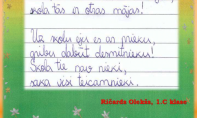 skola tās ir otrās mājas!
Uz skolu es eju ar prieku,
gribu dabūt desmitnieku!
Skola tie nav nieki,
saka visi teicamnieki.
Ričards Olehās, 1.C klase